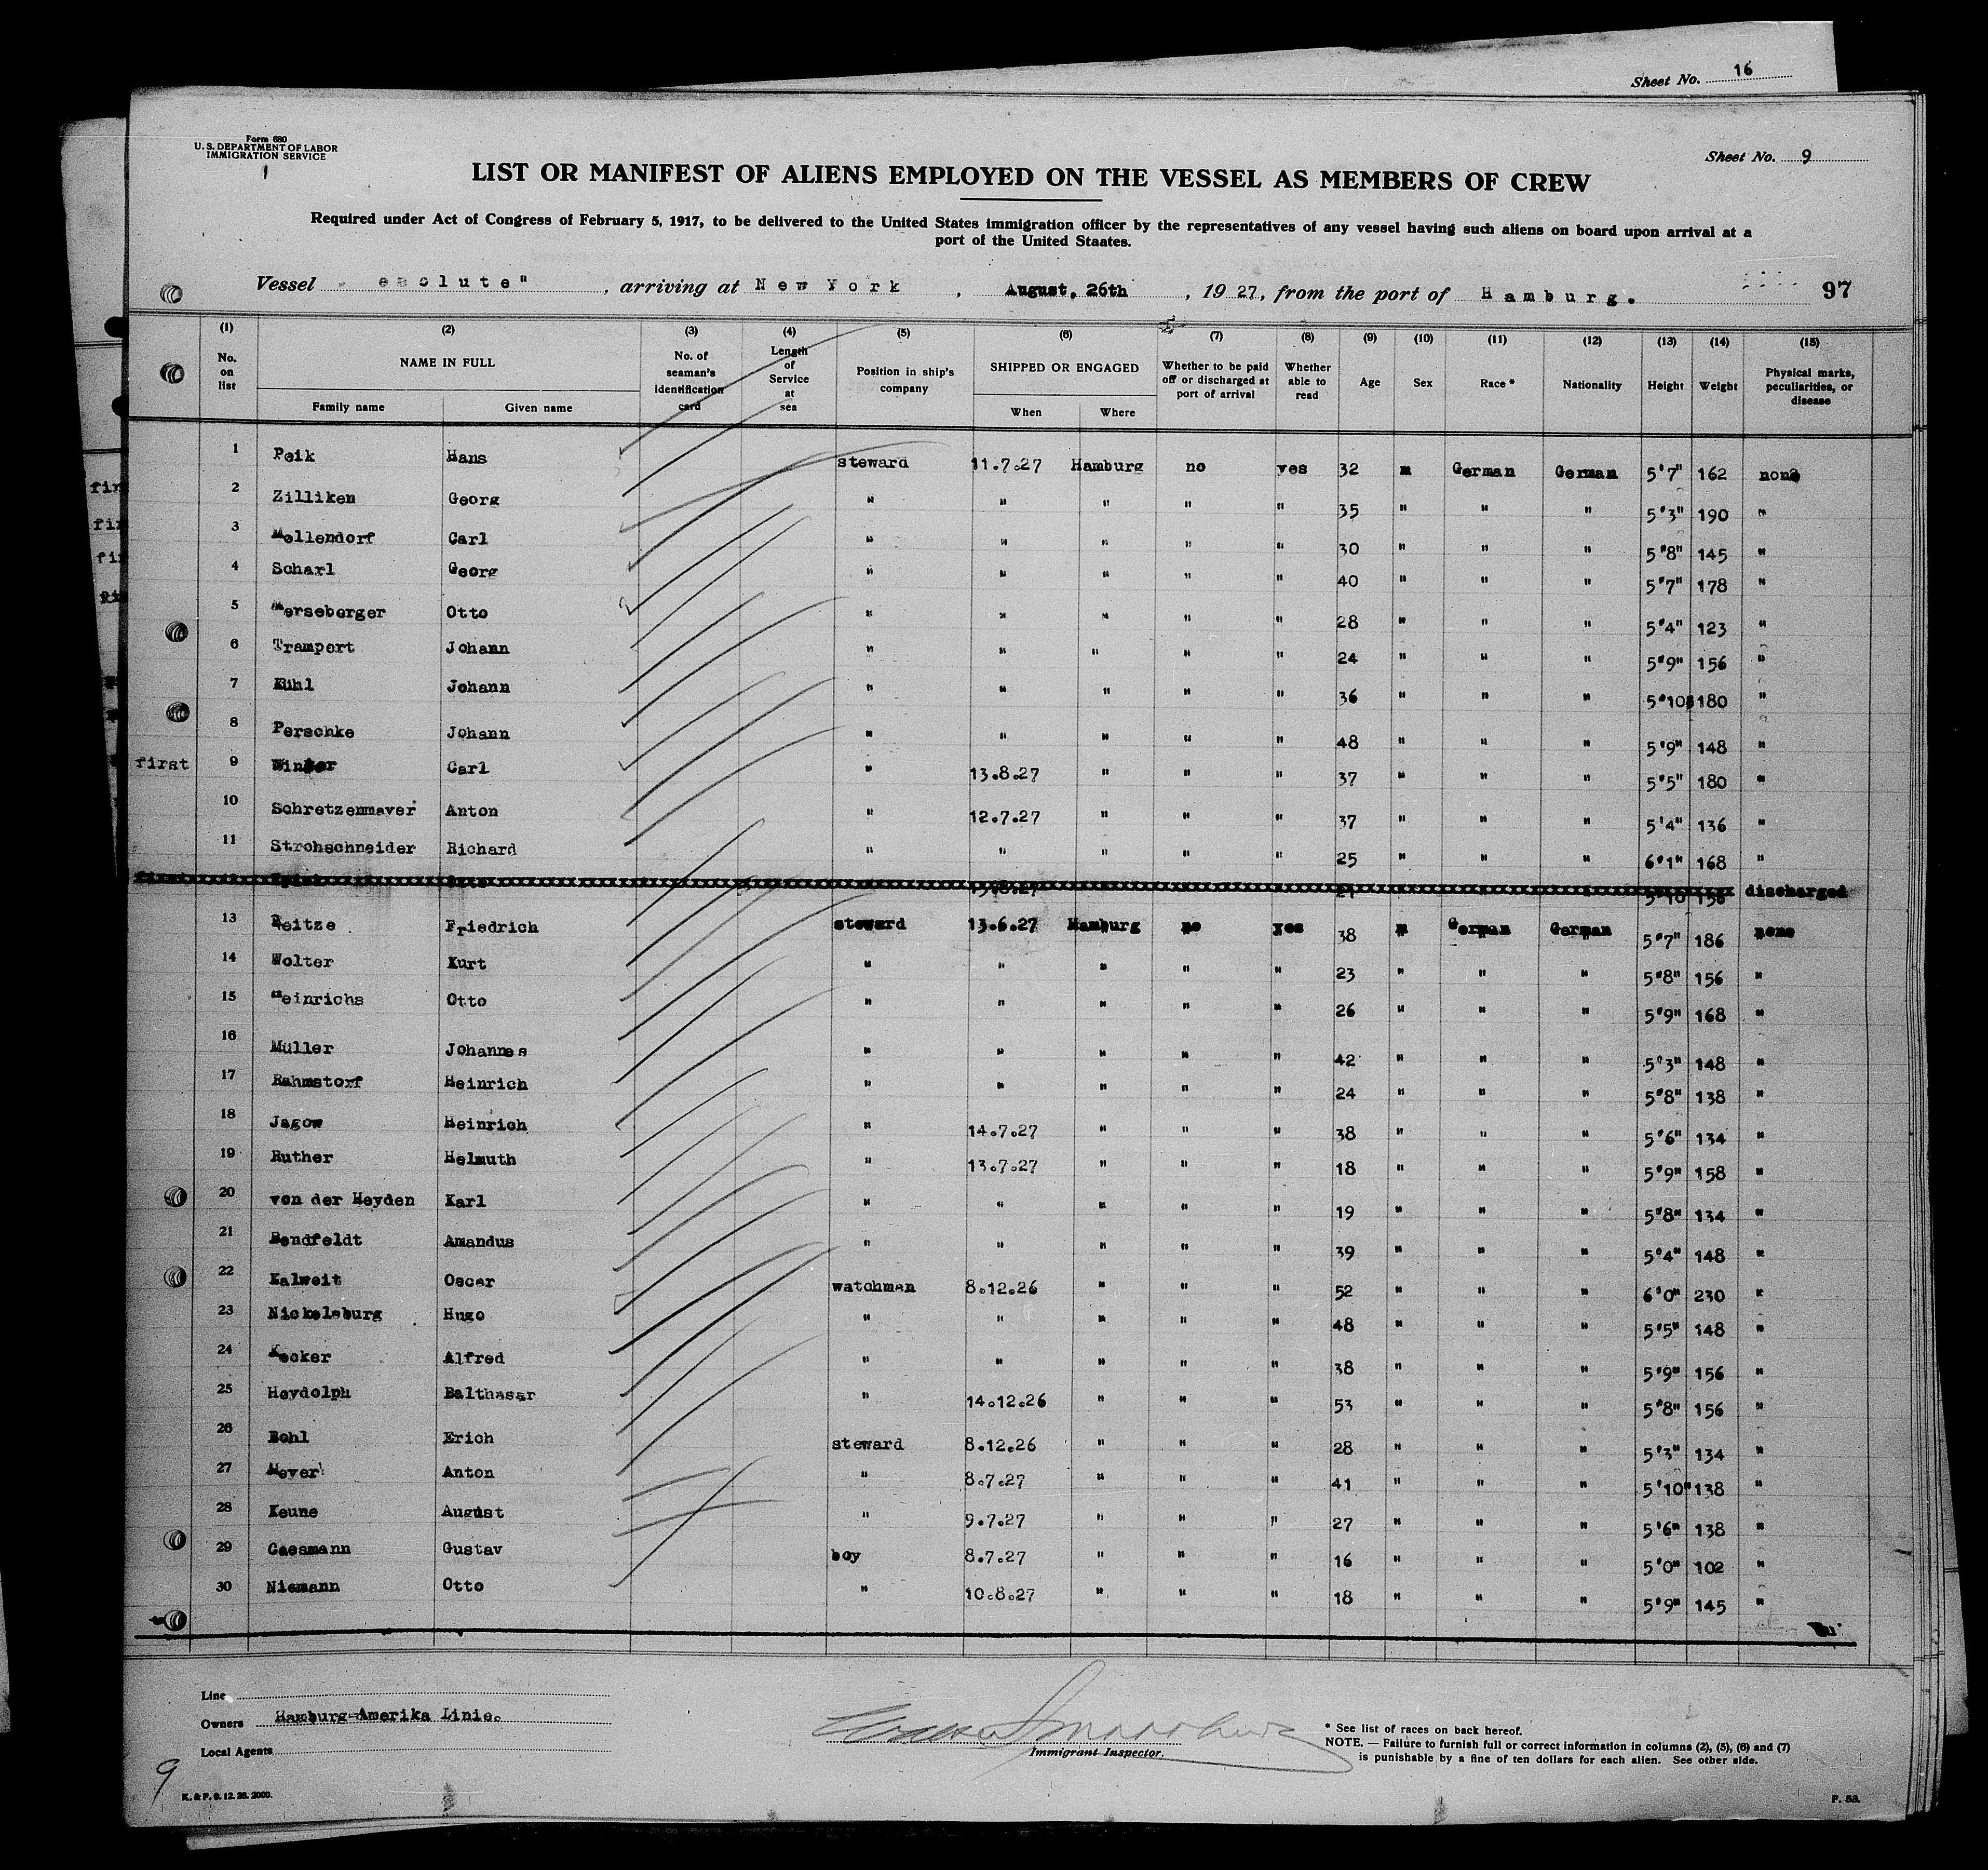 Sheet No. 16
Form 680
U. S. DEPARTMENT OF LABOR
IMMIGRATION SERVICE
Sheet No. 9
LIST OR MANIFEST OF ALIENS EMPLOYED ON THE VESSEL AS MEMBERS OF CREW
Required under Act of Congress of February 5, 1917, to be delivered to the United States immigration officer by the representatives of any vessel having such aliens on board upon arrival at a
port of the United Staates.
Vessel esolute" , arriving at New York , August, 26th , 19 27, from the port of Hamburg. 97
(1) (2) (3) (4) (5) (6) (7) (8) (9) (10) (11) (12) (13) (14) (15)
No. on list NAME IN FULL Family name Given name No. of seaman's identification card Length of Service at sea Position in ship's company SHIPPED OR ENGAGED When Where Whether to be paid off or discharged at port of arrival Whether able to read Age Sex Race * Nationality Height Weight Physical marks, peculiarities, or disease
1 Peik Hans steward 11.7.27 Hamburg no yes 32 m German German 5'7" 162 none
2 Zilliken Georg " " " " " 35 " " " 5'3" 190 "
3 Mollendorf Carl " " " " " 30 " " " 5'8" 145 "
4 Scharl Georg " " " " " 40 " " " 5'7" 178 "
5 Merseberger Otto " " " " " 28 " " " 5'4" 123 "
6 Trampert Johann " " " " " 24 " " " 5'9" 156 "
7 Johann " " " " " 36 " " " 5'10" 180 "
8 Perschke Johann " " " " " 48 " " " 5'9" 148 "
first 9 Winter Carl " 13.8.27 " " " 37 " " " 5'5" 180 "
10 Schretzenmayer Anton " 12.7.27 " " " 37 " " " 5'4" 136 "
11 Strohschneider Richard " " " " " 25 " " " 6'1" 168 "
first 13.8.27 21 5'10 156 discharged
13 Reitze Friedrich steward 13.6.27 Hamburg no yes 38 m German German 5'7" 186 none
14 Wolter Kurt " " " " " 23 " " " 5'8" 156 "
15 Heinrichs Otto " " " " " 26 " " " 5'9" 168 "
16 Müller Johannes " " " " " 42 " " " 5'3" 148 "
17 Rahmstorf Heinrich " " " " " 24 " " " 5'8" 138 "
18 Jagow Heinrich " 14.7.27 " " " 38 " " " 5'6" 134 "
19 Ruther Helmuth " 13.7.27 " " " 18 " " " 5'9" 158 "
20 von der Heyden Karl " " " " " 19 " " " 5'8" 134 "
21 Bendfeldt Amandus " " " " " 39 " " " 5'4" 148 "
22 Kalweit Oscar watchman 8.12.26 " " " 52 " " " 6'0" 230 "
23 Nickelsburg Hugo " " " " " 48 " " " 5'5" 148 "
24 Kecker Alfred " " " " " 38 " " " 5'9" 156 "
25 Heydolph Balthasar " 14.12.26 " " " 53 " " " 5'8" 156 "
26 Bohl Erich steward 8.12.26 " " " 28 " " " 5'3" 134 "
27 Meyer Anton " 8.7.27 " " " 41 " " " 5'10" 138 "
28 Keune August " 9.7.27 " " " 27 " " " 5'6" 138 "
29 Gaesmann Gustav boy 8.7.27 " " " 16 " " " 5'0" 102 "
30 Niemann Otto " 10.8.27 " " " 18 " " " 5'9" 145 "
Line
Owners Hamburg-Amerika Linie.
Local Agents
Immigrant Inspector.
* See list of races on back hereof.
NOTE. — Failure to furnish full or correct information in columns (2), (5), (6) and (7)
is punishable by a fine of ten dollars for each alien. See other side.
9
K. & P. 8. 12. 26. 2000.
F. 53.